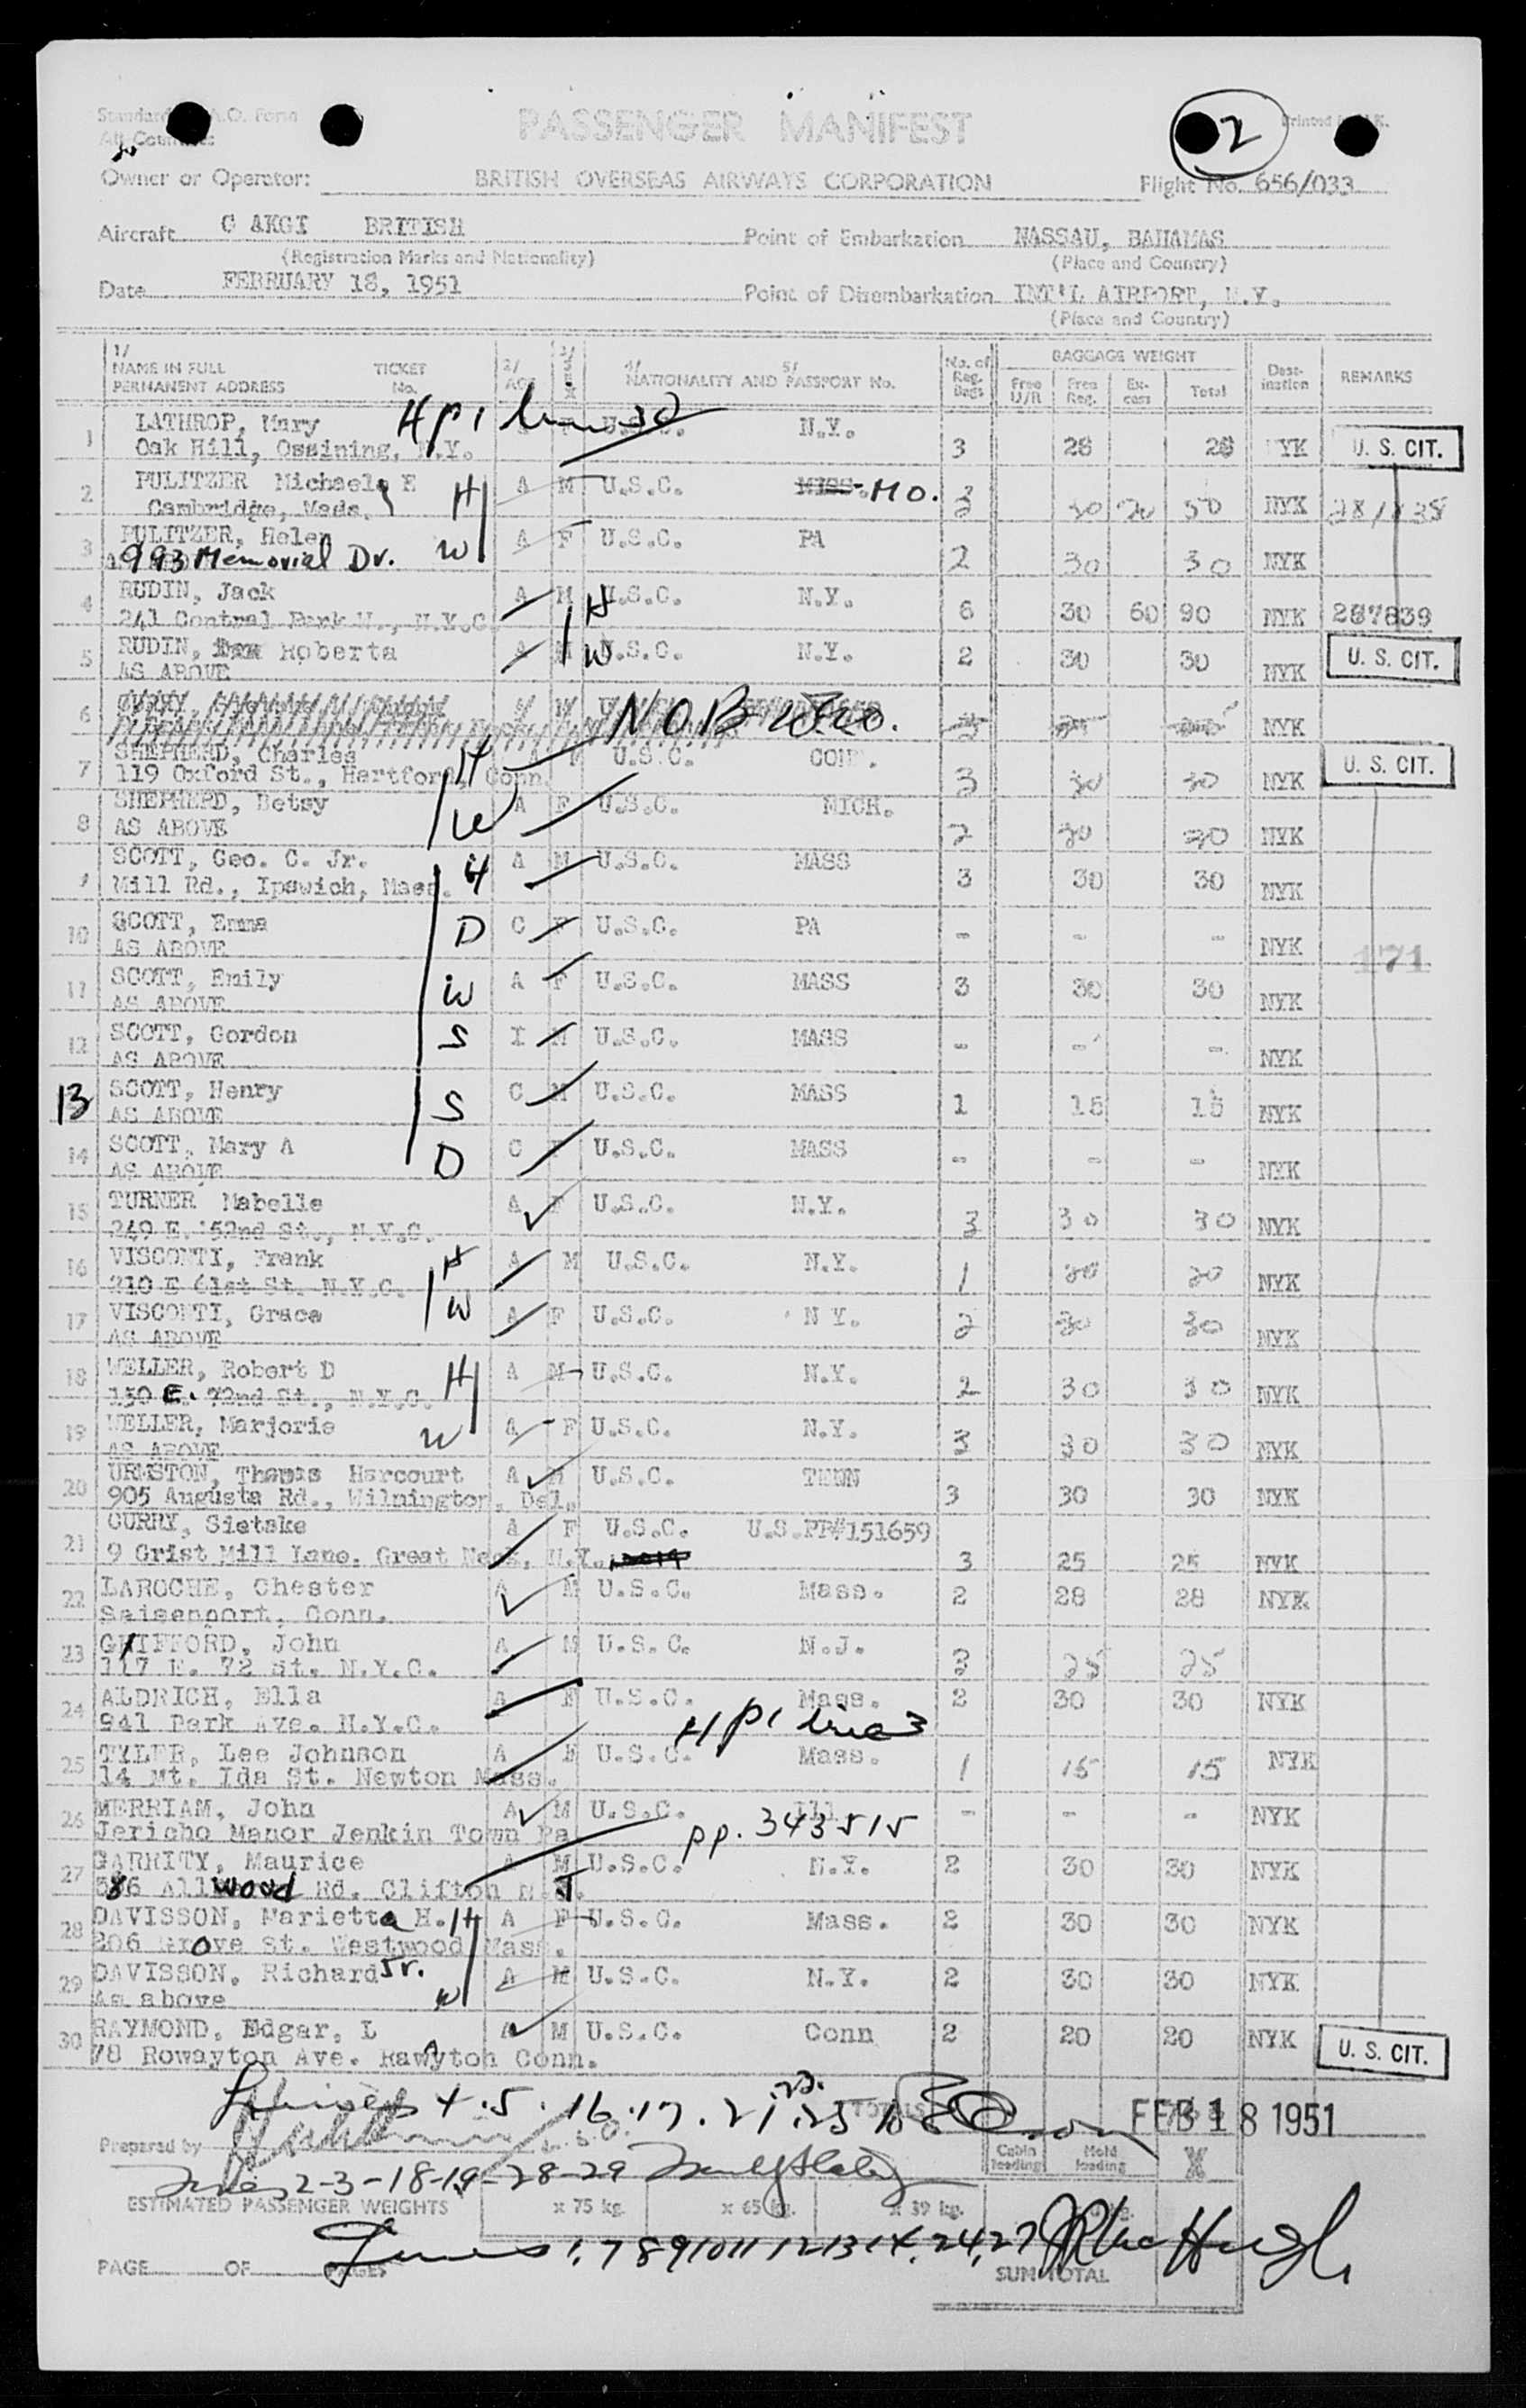 PASSENGER MANIFEST
2
Owner or Operator: BRITISH OVERSEAS AIRWAYS CORPORATION Flight No. 656/033
Aircraft G AKGI BRITISH Point of Embarkation NASSAU, BAHAMAS
(Registration Marks and Nationality) (Place and Country)
Date FEBRUARY 18, 1951 Point of Disembarkation INT'L AIRPORT, N.Y.
(Place and Country)
1/ NAME IN FULL PERMANENT ADDRESS TICKET No. 2/ AGE 3/ SEX 4/ 5/ NATIONALITY AND PASSPORT No. No. of Reg. Bags BAGGAGE WEIGHT Free U/R Free Reg. Excess Total Destination REMARKS
1 LATHROP, Mary N.Y. 3 28 28 NYK U. S. CIT.
Oak Hill, Ossining, N.Y.
2 PULITZER Michael E H A M U.S.C. MO. 30 20 50 NYK
Cambridge, Mass.
3 PULITZER, Helen W A F U.S.C. PA 2 30 30 NYK
993 Memorial Dr.
4 RUDIN, Jack A M H U.S.C. N.Y. 6 30 60 90 NYK 287839
241 Central Park W., N.Y.C.
5 RUDIN, Roberta A W U.S.C. N.Y. 2 30 30 NYK U. S. CIT.
AS ABOVE
6 NOB NYK
7 SHEPHERD, Charles H U.S.C. CONN. 3 30 30 NYK U. S. CIT.
119 Oxford St., Hartford, Conn.
8 SHEPHERD, Betsy W A F U.S.C. MICH. 2 NYK
AS ABOVE
9 SCOTT, Geo. C. Jr. H A M U.S.C. MASS 3 30 30 NYK
Mill Rd., Ipswich, Mass.
10 SCOTT, Emma D C F U.S.C. PA - - - NYK 171
AS ABOVE
11 SCOTT, Emily W A F U.S.C. MASS 3 30 30 NYK
AS ABOVE
12 SCOTT, Gordon S I M U.S.C. MASS - - - NYK
AS ABOVE
13 SCOTT, Henry S C M U.S.C. MASS 1 15 15 NYK
AS ABOVE
14 SCOTT, Mary A D C F U.S.C. MASS - - - NYK
AS ABOVE
15 TURNER Mabelle A F U.S.C. N.Y. 3 30 30 NYK
249 E. 52nd St., N.Y.C.
16 VISCONTI, Frank H A M U.S.C. N.Y. 1 20 20 NYK
210 E 61st St. N.Y.C.
17 VISCONTI, Grace W A F U.S.C. N Y. 2 30 30 NYK
AS ABOVE
18 WELLER, Robert D H A M U.S.C. N.Y. 2 30 30 NYK
150 E. 72nd St., N.Y.C.
19 WELLER, Marjorie W A F U.S.C. N.Y. 3 30 30 NYK
AS ABOVE
20 URMSTON, Thomas Harcourt A M U.S.C. TENN 3 30 30 NYK
905 Augusta Rd., Wilmington, Del.
21 CURRY, Sietske A F U.S.C. U.S.PP#151659 3 25 25 NYK
9 Grist Mill Lane. Great Neck, N.Y.
22 LAROCHE, Chester A M U.S.C. Mass. 2 28 28 NYK
Conn.
23 John A M U.S.C. N.J. 25 25
117 E. 72 St. N.Y.C.
24 ALDRICH, Ella A F U.S.C. Mass. 2 30 30 NYK
941 Park Ave. N.Y.C.
25 TYLER, Lee Johnson A F U.S.C. Mass. 1 15 15 NYK
14 Mt. Ida St. Newton Mass.
26 MERRIAM, John A M U.S.C. Ill - - - NYK
Jericho Manor Jenkin Town Pa pp. 343515
27 GARRITY, Maurice A M U.S.C. N.Y. 2 30 30 NYK
Allwood Rd. Clifton N.J.
28 DAVISSON, Marietta H. H A F U.S.C. Mass. 2 30 30 NYK
206 Grove St. Westwood Mass.
29 DAVISSON, Richard Jr. W A M U.S.C. N.Y. 2 30 30 NYK
As above
30 RAYMOND, Edgar, L A M U.S.C. Conn 2 20 20 NYK U. S. CIT.
78 Rowayton Ave. Conn.
Lines 4.5.16.17.21. FEB 18 1951
Prepared by Cabin loading Hold loading
Lines 2-3-18-19-28-29
ESTIMATED PASSENGER WEIGHTS x 75 kg. x 65 kg. x 39 kg.
Lines 1,7 8 9 10 11 12 13 14, 24, 27
PAGE OF PAGES SUM TOTAL